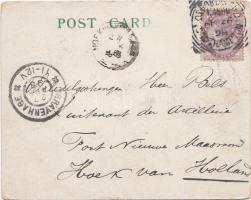 POST CARD
HOEK
'S GRAVENHAGE
11-12V
Weledelgestrengen Heer Bels
Luitenant der Artillerie
Fort Nieuwe Maasmond
Hoek van Holland